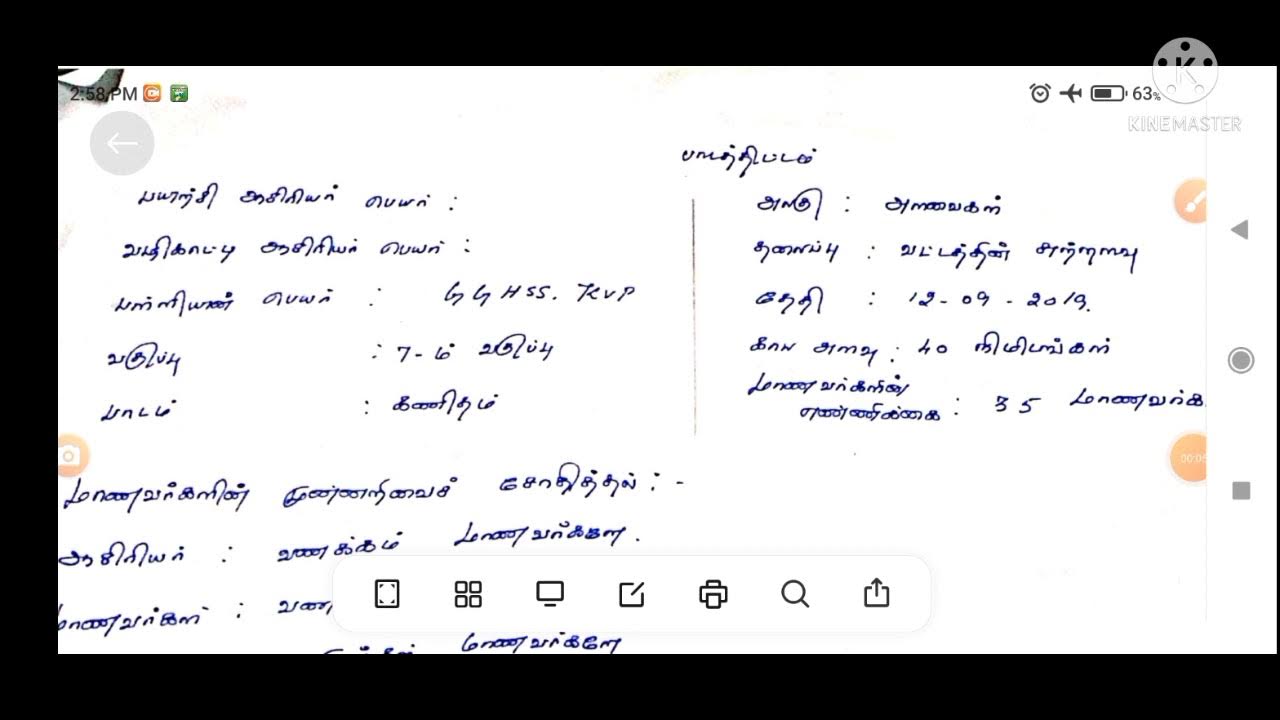 2:58 PM
63%
KINEMASTER
பாடத்திட்டம்
பயிற்சி ஆசிரியர் பெயர் :
வழிகாட்டி ஆசிரியர் பெயர் :
பள்ளியின் பெயர் : GGHSS. KVP
வகுப்பு : 7-ம் வகுப்பு
பாடம் : கணிதம்
அலகு : அளவைகள்
தலைப்பு : வட்டத்தின் சுற்றளவு
தேதி : 12-09-2019.
கால அளவு : 40 நிமிடங்கள்
மாணவர்களின்
எண்ணிக்கை : 35 மாணவர்க
மாணவர்களின் முன்னறிவைச் சோதித்தல் : -
ஆசிரியர் : வணக்கம் மாணவர்களே.
மாணவர்கள் : வண
மாணவர்களே
00:05